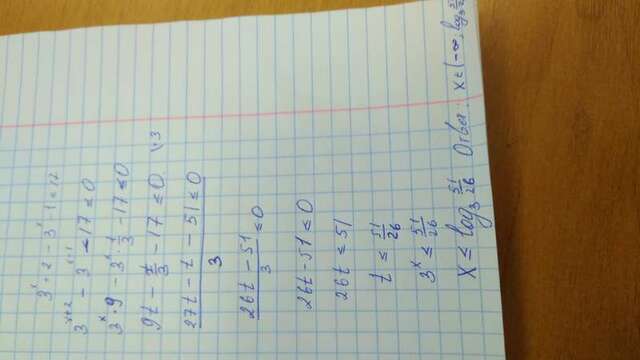 3^(x+2) - 3^(x-1) ≤ 17
3^(x+2) - 3^(x-1) - 17 ≤ 0
3^x · 9 - 3^x · 1/3 - 17 ≤ 0
9t - t/3 - 17 ≤ 0 |·3
(27t - t - 51)/3 ≤ 0
(26t - 51)/3 ≤ 0
26t - 51 ≤ 0
26t ≤ 51
t ≤ 51/26
3^x ≤ 51/26
x ≤ log_3 51/26 Ответ: x ∈ (-∞; log_3 51/26